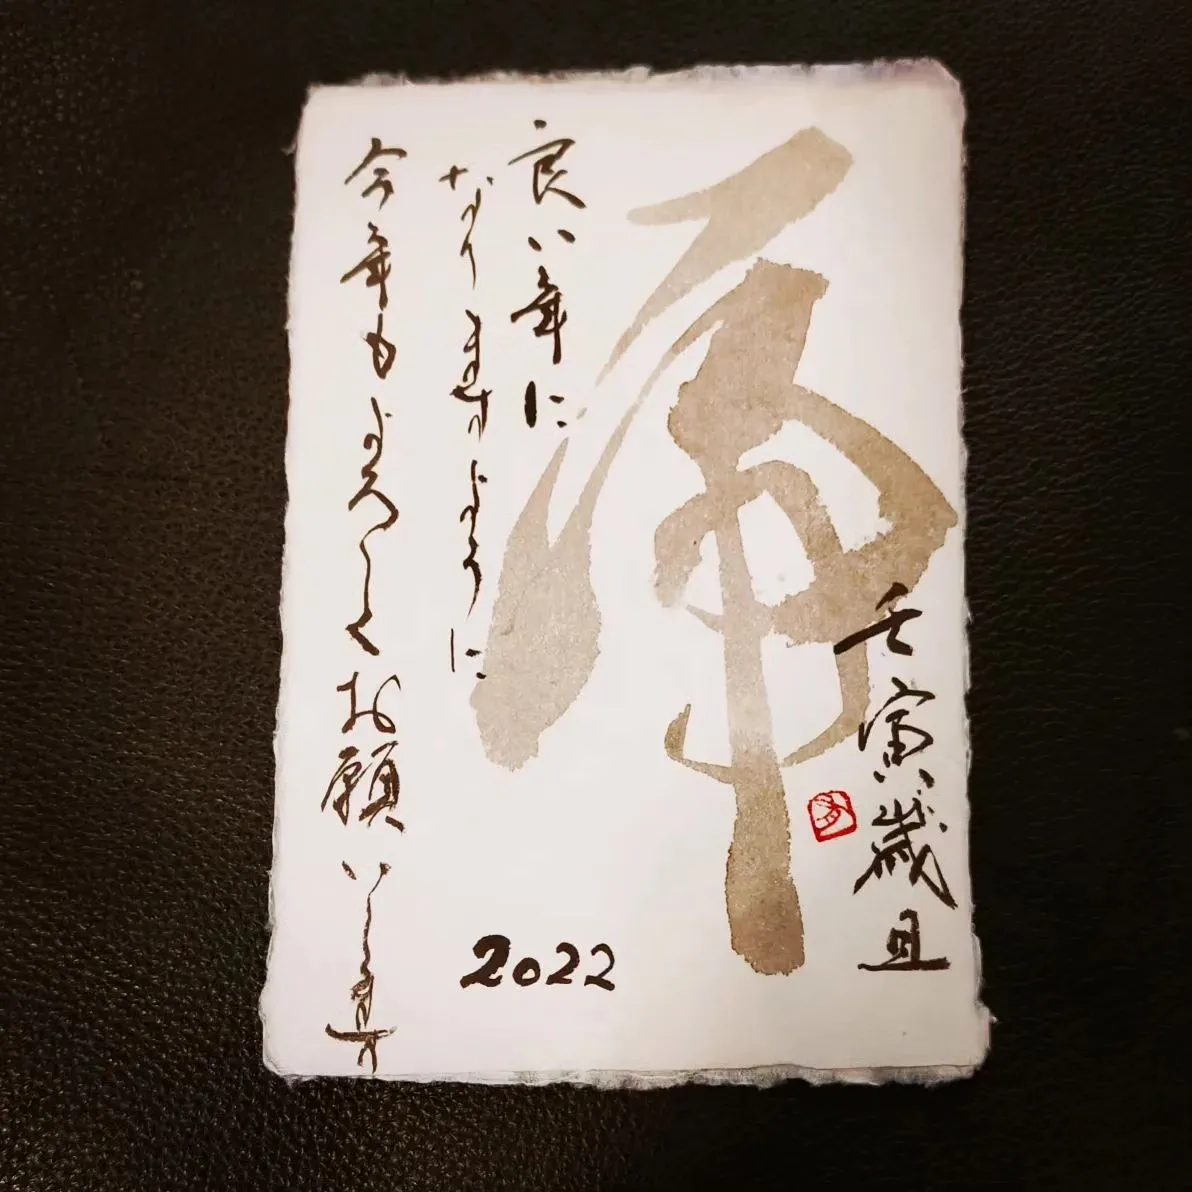 虎
壬寅歳旦
良い年に
なりますように
今年もよろしくお願いします
2022